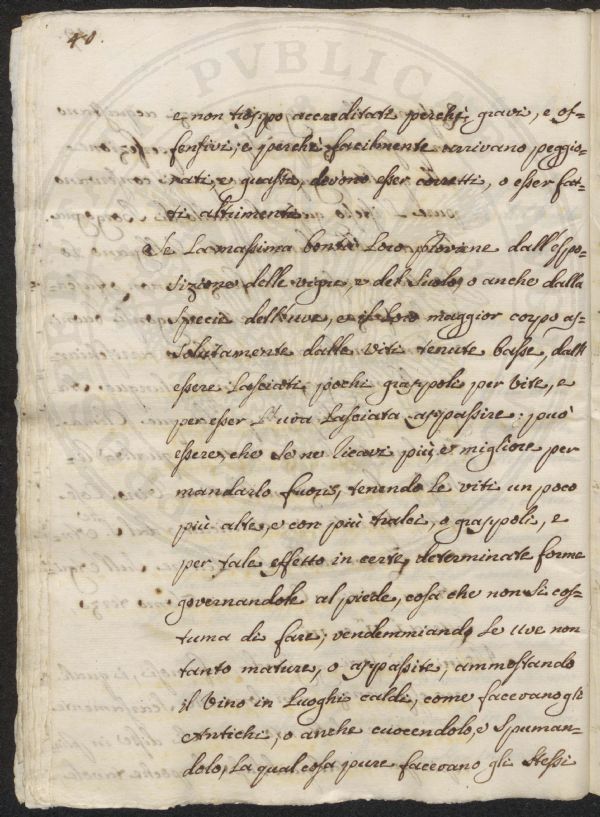 40.
PVBLICA
e non troppo accreditati perchè gravi, e of-
fensivi; e perchè facilmente arrivano peggio-
rati, e guasti, devono esser corretti, o esser fat-
ti altrimenti.
Se La massima bontà Loro proviene dall'espo-
sizione delle vigne, e del Suolo, o anche dalla
specie dell'uve, e il Loro maggior corpo as-
solutamente dalle viti tenute basse, dall'
essere Lasciati pochi grappoli per vite, e
per esser l'uva Lasciata appassire; può
essere, che se ne ricavi più, e migliore per
mandarlo fuori, tenendo Le viti un poco
più alte, e con più tralci, o grappoli, e
per tale effetto in certe determinate forme
governandole al piede, cosa che non si cos-
tuma di fare; vendemmiando Le uve non
tanto mature, o appassite, ammostando
il Vino in Luoghi caldi, come facevano gli
Antichi, o anche cuocendolo, e spuman-
dolo, La qual cosa pure facevano gli Stessi